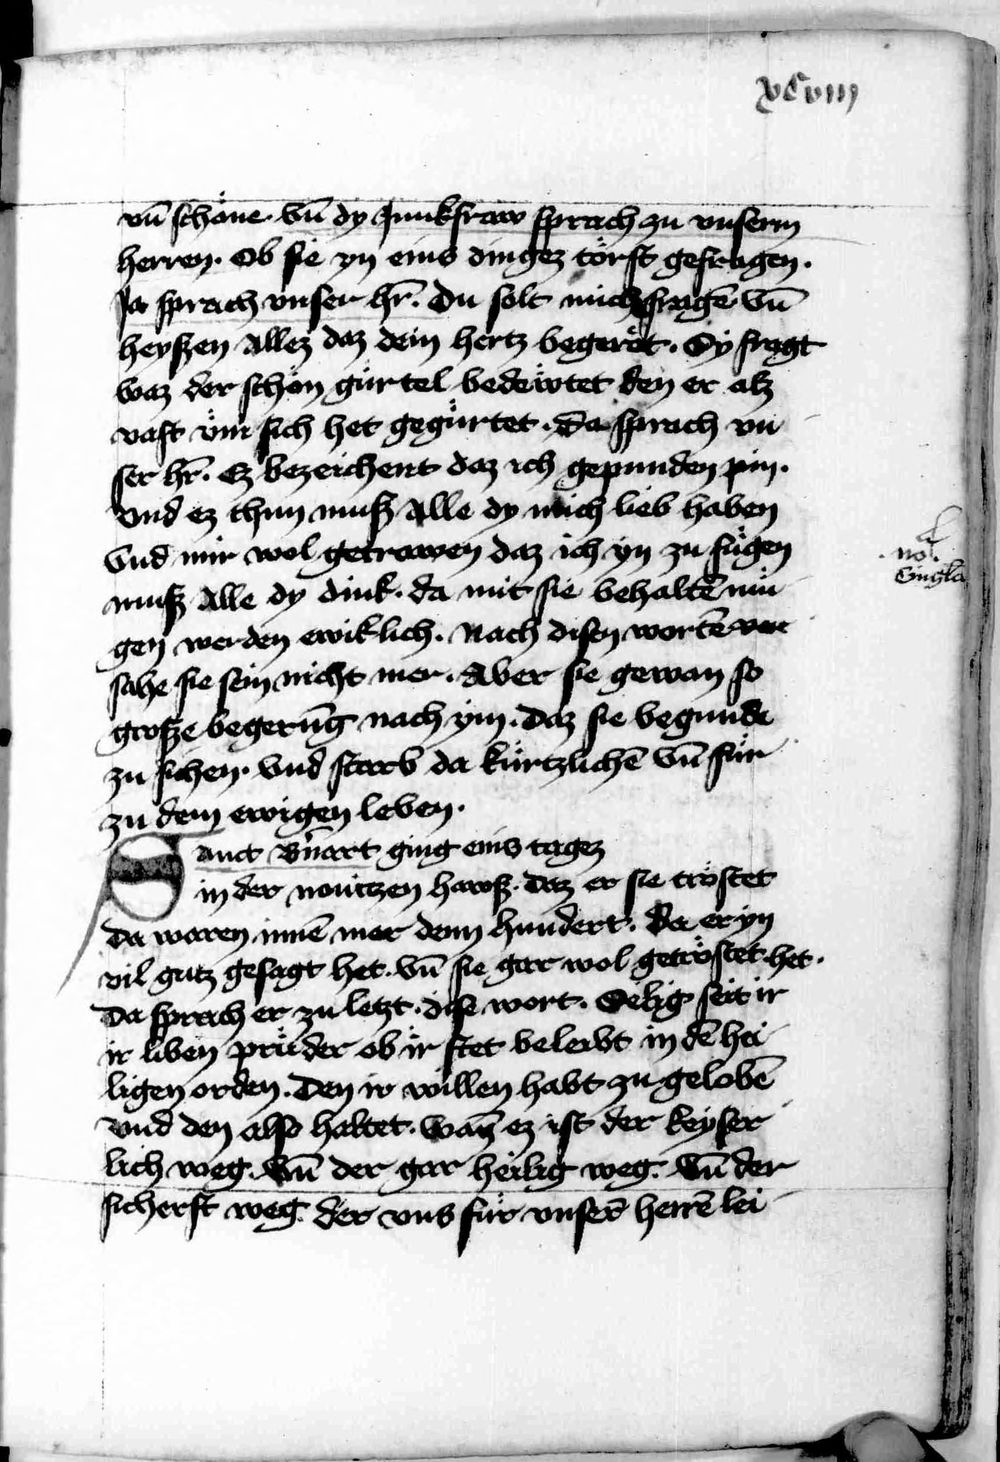 xcviii
vn̄ schöne. Vn̄ dy Junkfraw sprach zu vnserm
herren. Ob sie yn eins dingez törst gefragen.
Ja sprach vnser hr̄. Du solt mich fragē vn̄
heyszen allez daz dein hertz begeret. Sy fragt
waz der schön gürtel bedewtet den er alz
vast üm sich het gegürtet. Da sprach vn
ser hr̄. Ez bezeichent daz ich gepunden pin.
Vnd ez thun musz Alle dy mich lieb haben
Vnd mir wol getrawen daz ich yn zu fügen
musz Alle dy dink. da mit sie behaltē mü
gen werden ewiklich. Nach disen wortē
sahe sie sein nicht mer. Aber sie gewan so
grosze begerūg nach ym. Daz sie begunde
zu sichen. Vnd starb da kürtzlichē Vn̄ für
zu dem ewigen leben.
Sanct Bn̄art ging eins tagez
in der nouitzen hawsz. Daz er sie tröstet
Da waren innē mer denn hundert. Da er yn
vil gutz gesagt het. Vn̄ sie gar wol getröstet het.
Da sprach er zu letzt. dise wort. Selig seit ir
ir liben prüder ob ir stet beleibt in dē hei
ligen orden. Den ir willen habt zu gelobē
Vnd den also haltet. Wan̄ ez ist der keyser
lich weg. Vn̄ der gar heilig weg. Vn̄ der
sicherst weg. der vns für vnserē herrē lei